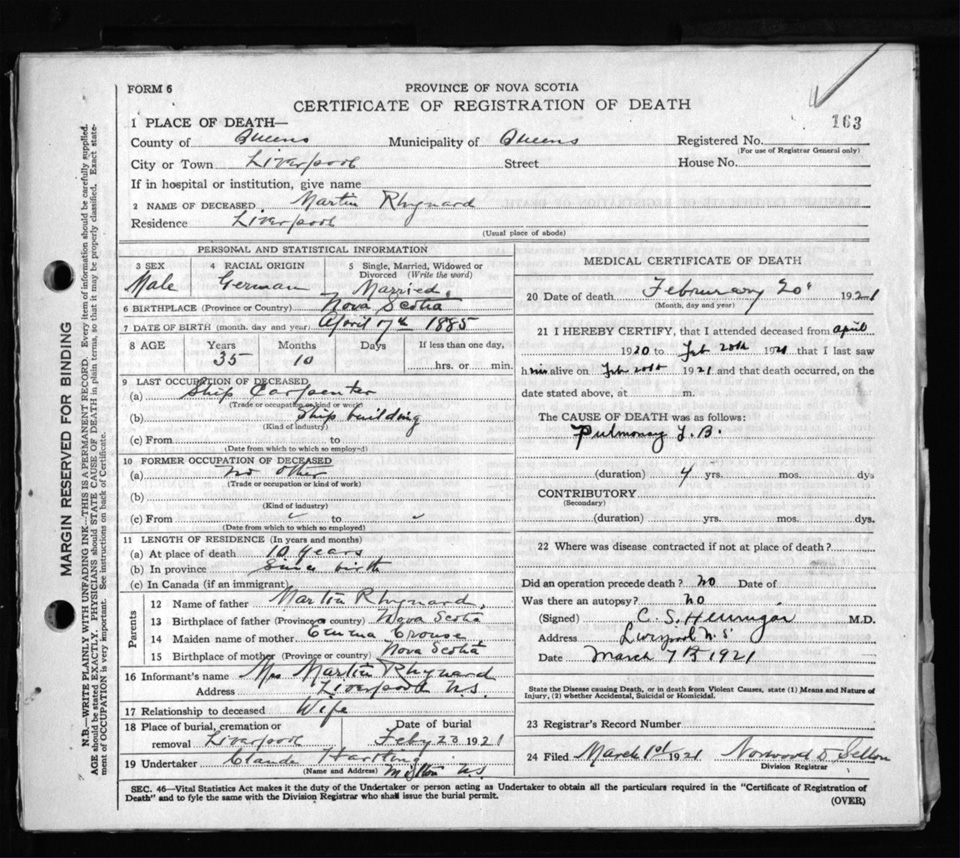 FORM 6
PROVINCE OF NOVA SCOTIA
CERTIFICATE OF REGISTRATION OF DEATH
163
1 PLACE OF DEATH—
County of Queens Municipality of Queens Registered No.
(For use of Registrar General only)
City or Town Liverpool Street House No.
If in hospital or institution, give name
2 NAME OF DECEASED Martin Rhynard
Residence Liverpool
(Usual place of abode)
PERSONAL AND STATISTICAL INFORMATION
3 SEX 4 RACIAL ORIGIN 5 Single, Married, Widowed or Divorced (Write the word)
Male German Married
6 BIRTHPLACE (Province or Country) Nova Scotia
7 DATE OF BIRTH (month, day and year) April 7th 1885
8 AGE Years Months Days If less than one day,
35 10 hrs. or min.
9 LAST OCCUPATION OF DECEASED
(a) Ship Carpenter
(Trade or occupation or kind or work)
(b) Ship building
(Kind of industry)
(c) From to
(Date from which to which so employed)
10 FORMER OCCUPATION OF DECEASED
(a) no other
(Trade or occupation or kind of work)
(b)
(Kind of industry)
(c) From to
(Date from which to which so employed)
11 LENGTH OF RESIDENCE (In years and months)
(a) At place of death 10 years
(b) In province Since birth
(c) In Canada (if an immigrant)
Parents
12 Name of father Martin Rhynard
13 Birthplace of father (Province or country) Nova Scotia
14 Maiden name of mother Emma Crouse
15 Birthplace of mother (Province or country) Nova Scotia
16 Informant's name Mrs Martin Rhynard
Address Liverpool N.S.
17 Relationship to deceased Wife
18 Place of burial, cremation or removal Liverpool
Date of burial
Feby 23 1921
19 Undertaker Claude Hartling
(Name and Address) Milton N.S.
MEDICAL CERTIFICATE OF DEATH
20 Date of death February 20 1921
(Month, day and year)
21 I HEREBY CERTIFY, that I attended deceased from april
1920 to Feb 20th 1921 that I last saw
him alive on Feb 20th 1921 and that death occurred, on the
date stated above, at m.
The CAUSE OF DEATH was as follows:
Pulmonary T.B.
(duration) 4 yrs. mos. dys
CONTRIBUTORY
(Secondary)
(duration) yrs. mos. dys.
22 Where was disease contracted if not at place of death?
Did an operation precede death? no Date of
Was there an autopsy? no
(Signed) C. S. Hennigar M.D.
Address Liverpool N.S.
Date March 7th 1921
State the Disease causing Death, or in death from Violent Causes, state (1) Means and Nature of
Injury, (2) whether Accidental, Suicidal or Homicidal.
23 Registrar's Record Number
24 Filed March 1st 1921 Norwood
Division Registrar
SEC. 46—Vital Statistics Act makes it the duty of the Undertaker or person acting as Undertaker to obtain all the particulars required in the "Certificate of Registration of
Death" and to fyle the same with the Division Registrar who shall issue the burial permit.
(OVER)
MARGIN RESERVED FOR BINDING
N.B.—WRITE PLAINLY WITH UNFADING INK—THIS IS A PERMANENT RECORD. Every item of information should be carefully supplied.
AGE should be stated EXACTLY. PHYSICIANS should STATE CAUSE OF DEATH in plain terms, so that it may be properly classified. Exact state-
ment of OCCUPATION is very important. See instructions on back of Certificate.